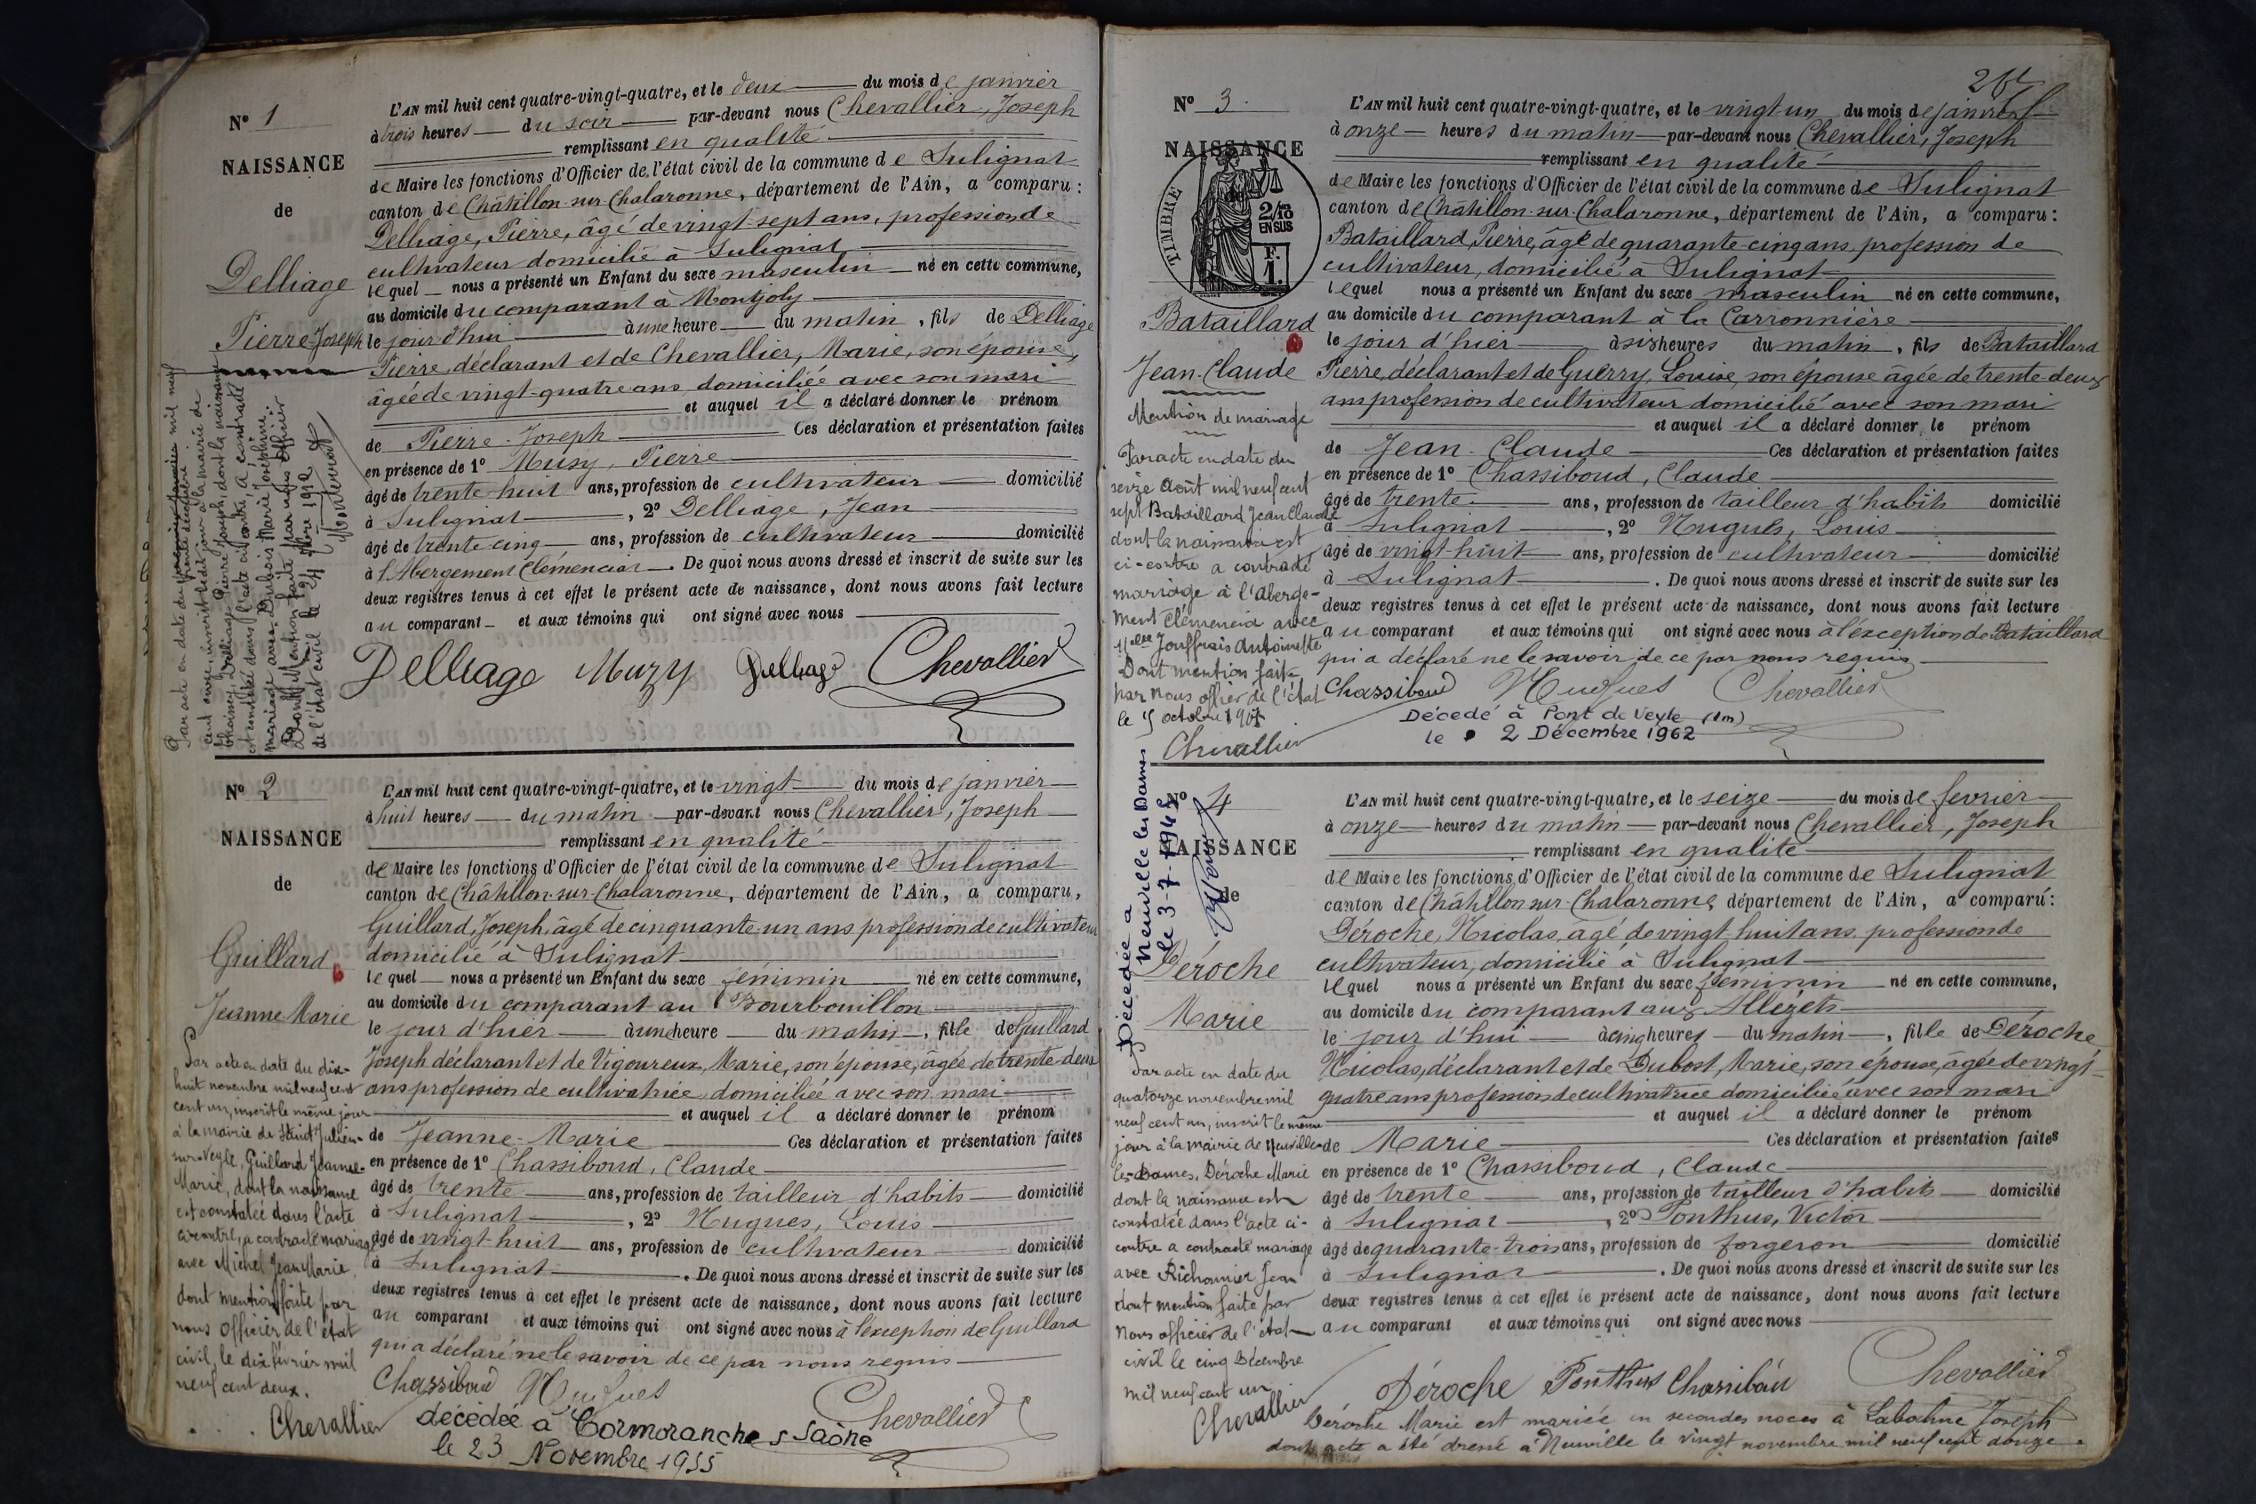 N° 1
NAISSANCE
de
Delliage
Pierre-Joseph
L'AN mil huit cent quatre-vingt-quatre, et le deux du mois de janvier
à trois heures du soir par-devant nous Chevallier, Joseph
remplissant en qualité
de Maire les fonctions d'Officier de l'état civil de la commune de Sulignat
canton de Châtillon-sur-Chalaronne, département de l'Ain, a comparu :
Delliage, Pierre, âgé de vingt-sept ans, profession de
cultivateur domicilié à Sulignat
lequel nous a présenté un Enfant du sexe masculin né en cette commune,
au domicile du comparant à Montjoly
le jour d'hui à une heure du matin, fils de Delliage
Pierre, déclarant et de Chevallier, Marie, son épouse,
âgée de vingt-quatre ans, domiciliée avec son mari
et auquel il a déclaré donner le prénom
de Pierre-Joseph Ces déclaration et présentation faites
en présence de 1° Muzy, Pierre
âgé de trente huit ans, profession de cultivateur domicilié
à Sulignat, 2° Delliage, Jean
âgé de trente cinq ans, profession de cultivateur domicilié
à l'Abergement Clémenciat. De quoi nous avons dressé et inscrit de suite sur les
deux registres tenus à cet effet le présent acte de naissance, dont nous avons fait lecture
au comparant et aux témoins qui ont signé avec nous
Delliage Muzy Delliage Chevallier
mil neuf
cent onze, inscrit le dit jour à la mairie de
Delliage Pierre Joseph, dont la naissance
est constatée dans l'acte ci contre, a contracté
mariage avec Dubois Marie Joséphine.
Dont Mention faite par nous Officier
de l'état civil le 24 1912
N° 2
NAISSANCE
de
Guillard
Jeanne-Marie
L'AN mil huit cent quatre-vingt-quatre, et le vingt du mois de janvier
à huit heures du matin par-devant nous Chevallier, Joseph
remplissant en qualité
de Maire les fonctions d'Officier de l'état civil de la commune de Sulignat
canton de Châtillon-sur-Chalaronne, département de l'Ain, a comparu,
Guillard, Joseph, âgé de cinquante-un ans profession de cultivateur
domicilié à Sulignat
lequel nous a présenté un Enfant du sexe féminin né en cette commune,
au domicile du comparant au Bourbouillon
le jour d'hier à une heure du matin, fille de Guillard
Joseph déclarant et de Vigoureux, Marie, son épouse, âgée de trente-deux
ans profession de cultivatrice, domiciliée avec son mari
et auquel il a déclaré donner le prénom
de Jeanne-Marie Ces déclaration et présentation faites
en présence de 1° Chassiboud, Claude
âgé de trente ans, profession de tailleur d'habits domicilié
à Sulignat, 2° Nugues, Louis
âgé de vingt-huit ans, profession de cultivateur domicilié
à Sulignat. De quoi nous avons dressé et inscrit de suite sur les
deux registres tenus à cet effet le présent acte de naissance, dont nous avons fait lecture
au comparant et aux témoins qui ont signé avec nous à l'exception de Guillard
qui a déclaré ne le savoir de ce par nous requis
Chassiboud Nugues Chevallier
Par acte en date du dix-
huit novembre mil neuf cent
cent un, inscrit le même jour
à la mairie de Saint Julien-
sur-Veyle, Guillard Jeanne-
Marie, dont la naissance
est constatée dans l'acte
ci contre, a contracté mariage
avec Michel Jean Marie,
dont mention faite par
nous officier de l'état
civil, le dix février mil
neuf cent deux.
Chevallier
décédée à Cormoranche s Saône
le 23 Novembre 1955
N° 3
NAISSANCE
TIMBRE
2/10
EN SUS
F.
1.
Bataillard
Jean-Claude
L'AN mil huit cent quatre-vingt-quatre, et le vingt un du mois de janvier
à onze heures du matin par-devant nous Chevallier, Joseph
remplissant en qualité
de Maire les fonctions d'Officier de l'état civil de la commune de Sulignat
canton de Châtillon-sur-Chalaronne, département de l'Ain, a comparu :
Bataillard, Pierre, âgé de quarante-cinq ans, profession de
cultivateur, domicilié à Sulignat
lequel nous a présenté un Enfant du sexe masculin né en cette commune,
au domicile du comparant à la Carronnière
le jour d'hier à six heures du matin, fils de Bataillard
Pierre, déclarant et de Guerry, Louise, son épouse âgée de trente deux
ans profession de cultivateur domicilié avec son mari
et auquel il a déclaré donner le prénom
de Jean-Claude Ces déclaration et présentation faites
en présence de 1° Chassiboud, Claude
âgé de trente ans, profession de tailleur d'habits domicilié
à Sulignat, 2° Nugues, Louis
âgé de vingt-huit ans, profession de cultivateur domicilié
à Sulignat. De quoi nous avons dressé et inscrit de suite sur les
deux registres tenus à cet effet le présent acte de naissance, dont nous avons fait lecture
au comparant et aux témoins qui ont signé avec nous à l'exception de Bataillard
qui a déclaré ne le savoir de ce par nous requis
Chassiboud Nugues Chevallier
Mention de mariage
Par acte en date du
seize Août mil neuf cent
sept Bataillard Jean Claude
dont la naissance est
ci-contre a contracté
mariage à l'Aberge-
ment Clémenciat avec
Jouffrais Antoinette
Dont mention faite
par nous officier de l'état
le 5 octobre 1907
Chevallier
Décedé à Pont de Veyle (Ain)
le 2 Décembre 1962
N° 4
NAISSANCE
de
Déroche
Marie
Décédée à
Neuville les Dames
le 3-7-1942
L'AN mil huit cent quatre-vingt-quatre, et le seize du mois de fevrier
à onze heures du matin par-devant nous Chevallier, Joseph
remplissant en qualité
de Maire les fonctions d'Officier de l'état civil de la commune de Sulignat
canton de Châtillon-sur-Chalaronne, département de l'Ain, a comparu :
Déroche, Nicolas, agé de vingt huit ans profession de
cultivateur, domicilié à Sulignat
lequel nous a présenté un Enfant du sexe féminin né en cette commune,
au domicile du comparant aux Allézets
le jour d'hui à cinq heures du matin, fille de Déroche
Nicolas, déclarant et de Dubost, Marie, son épouse, âgée de vingt-
quatre ans profession de cultivatrice domiciliée avec son mari
et auquel il a déclaré donner le prénom
de Marie Ces déclaration et présentation faites
en présence de 1° Chassiboud, Claude
âgé de trente ans, profession de tailleur d'habits domicilié
à Sulignat, 2° Ponthus, Victor
âgé de quarante-trois ans, profession de forgeron domicilié
à Sulignat. De quoi nous avons dressé et inscrit de suite sur les
deux registres tenus à cet effet le présent acte de naissance, dont nous avons fait lecture
au comparant et aux témoins qui ont signé avec nous
Déroche Ponthus Chassiboud Chevallier
Par acte en date du
quatorze novembre mil
neuf cent un, inscrit le même
jour à la mairie de Neuville-
les-Dames, Déroche Marie
dont la naissance est
constatée dans l'acte ci-
contre a contracté mariage
avec Richonnier Jean
dont mention faite par
Nous officier de l'état
civil le cinq Décembre
mil neuf cent un
Chevallier
Déroche Marie est mariée en secondes noces à Labalme Joseph
dont acte a été dressé à Neuville le vingt novembre mil neuf cent douze.